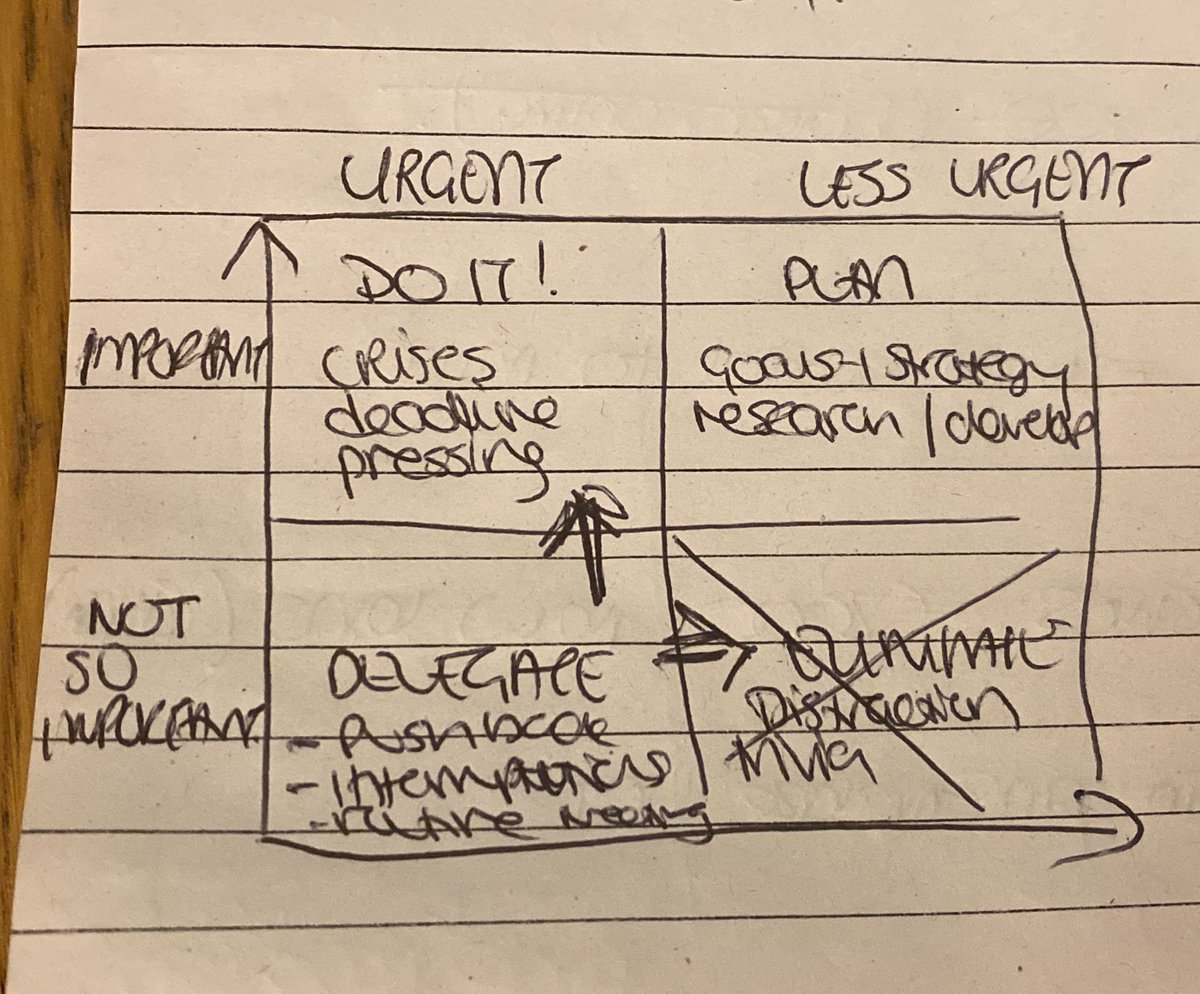 URGENT LESS URGENT
DO IT! PLAN
IMPORTANT
crises
deadline
pressing
goals + strategy
research / develop
NOT
SO
IMPORTANT
DELEGATE
- pushback
- interruptions
- routine meeting
ELIMINATE
Distraction
trivia